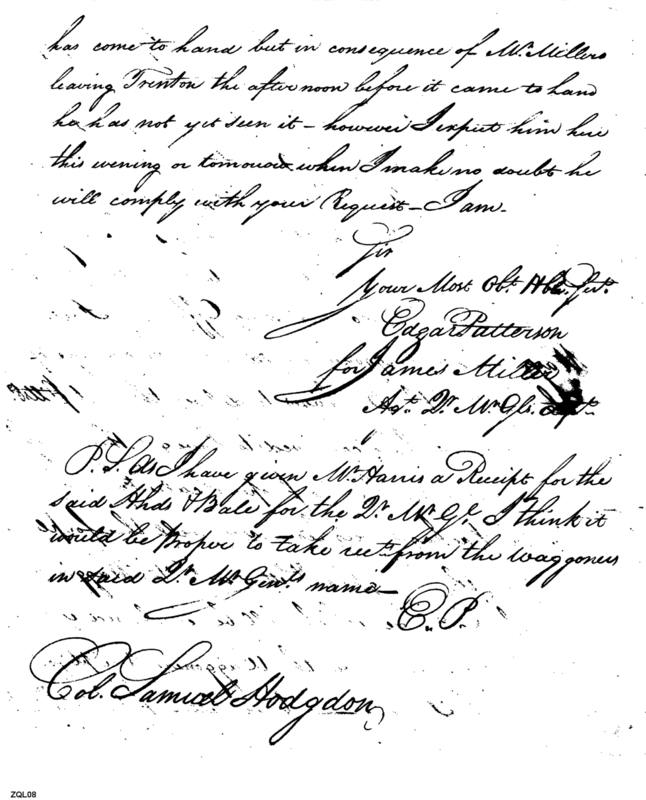 has come to hand but in consequence of Mr. Millers
leaving Trenton the afternoon before it came to hand
he has not yet seen it – however I expect him here
this evening or tomorrow when I make no doubt he
will comply with your Request – I am –
Sir
Your Most Obt. Hble. Servt.
Edgar Patterson
for James Miller
Agt. Qr. Mr. Gls. Dept.
P.S. As I have given Mr. Harris a Receipt for the
said Hhds & Bale for the Qr. Mr. Gl. I think it
would be Proper to take rect. from the waggoners
in said Qr. Mr. Genls name –
E. P.
Col. Samuel Hodgdon
ZQL08